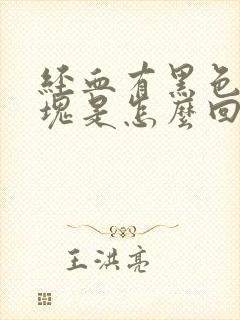 經血有黑色
塊是怎麼回
王洪亮